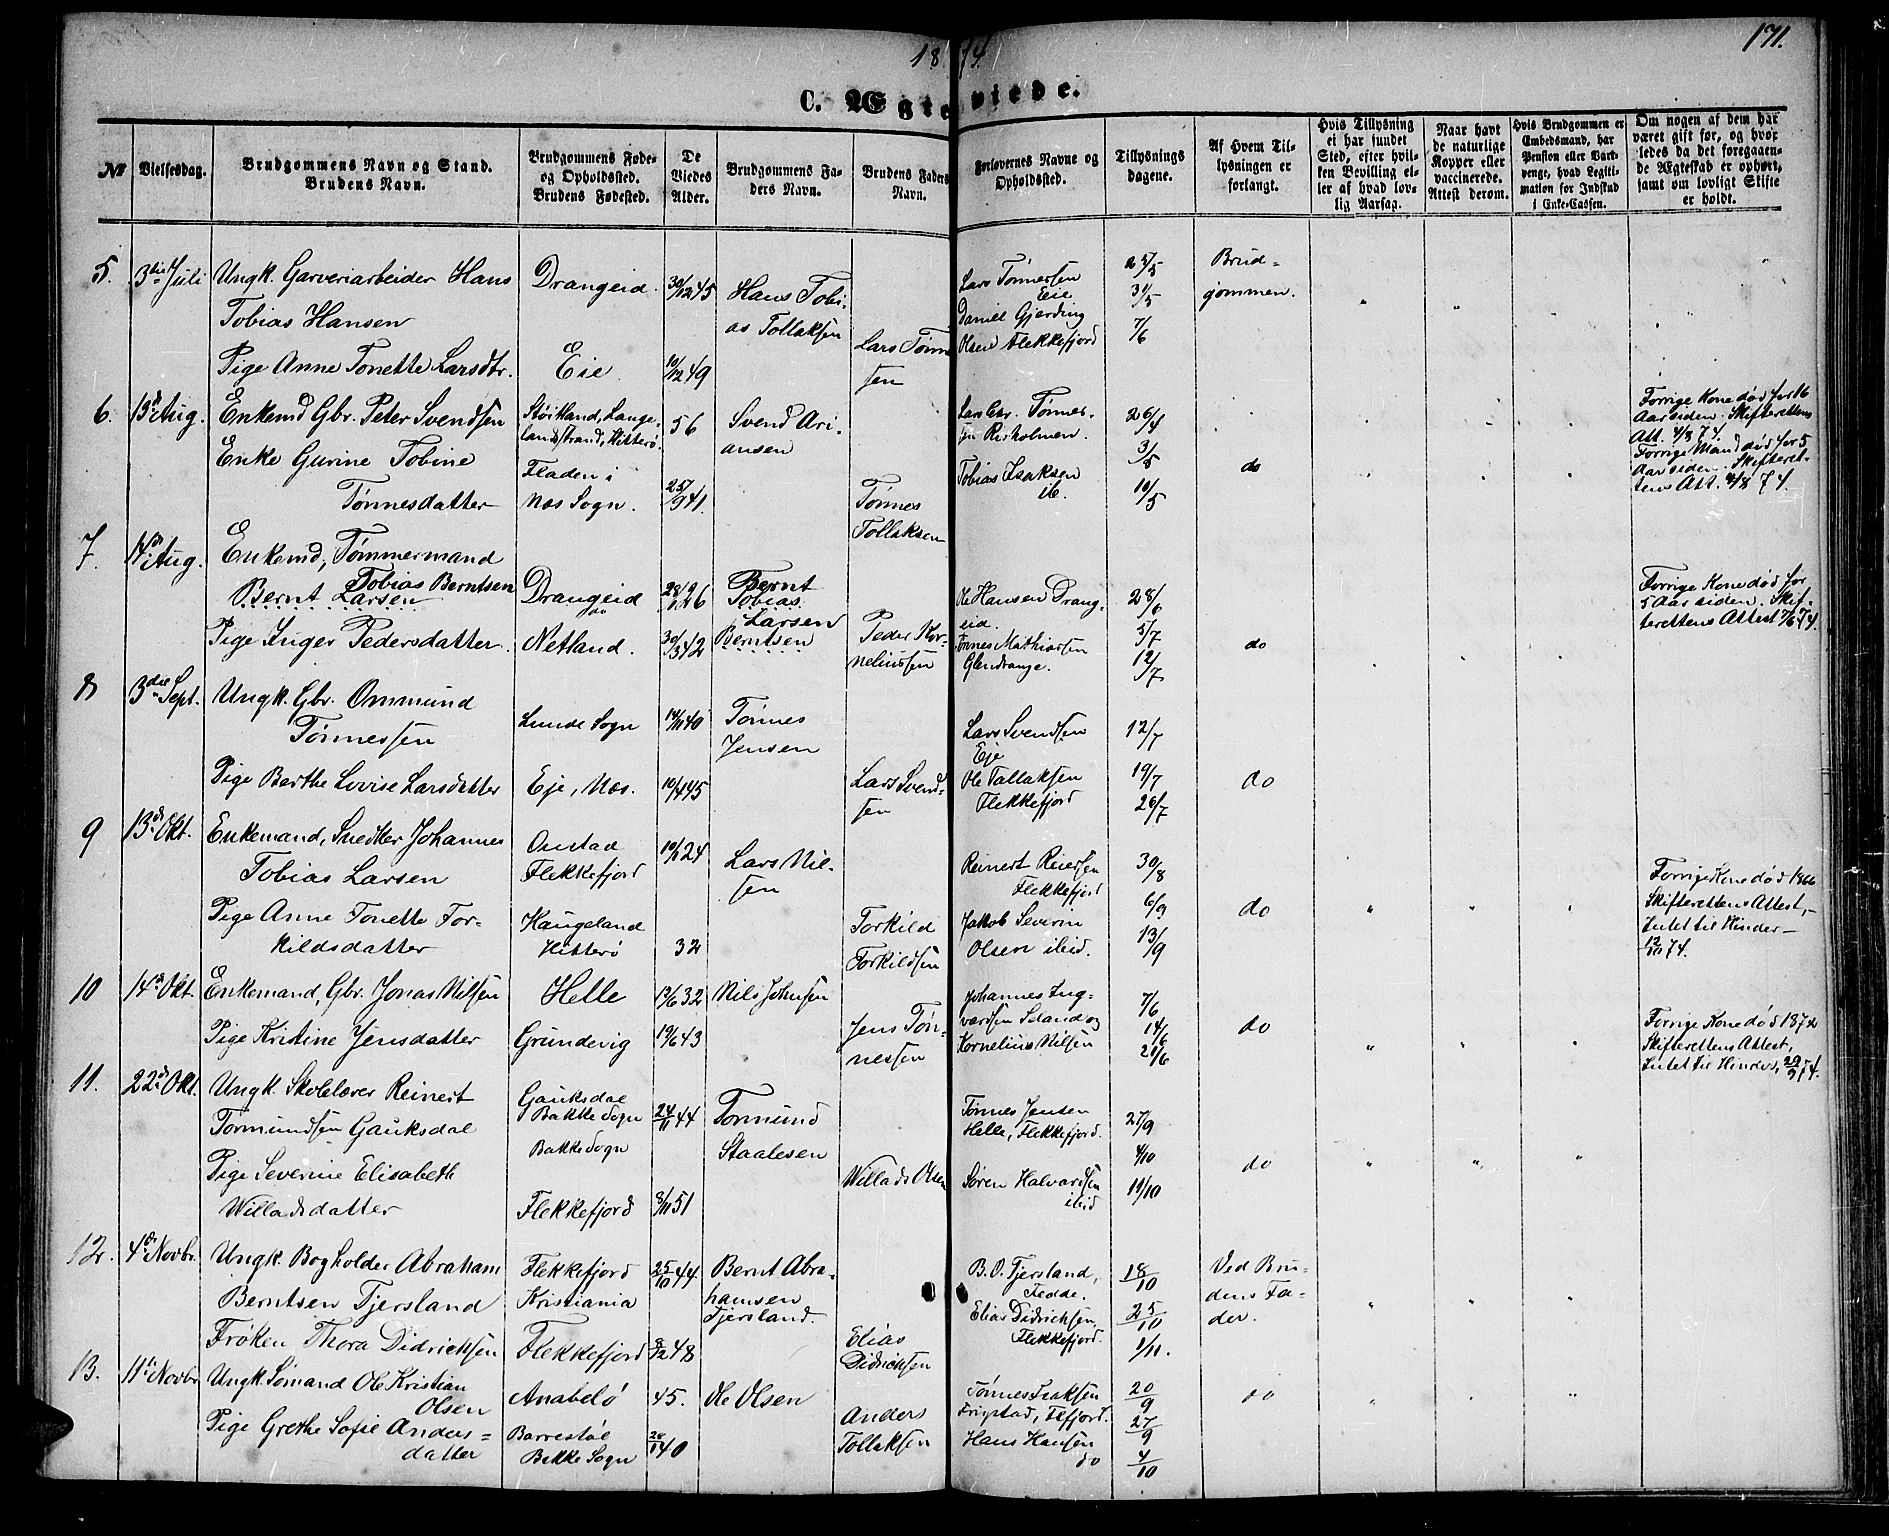 1874.
171.
C. Ægteviede.
No
Vielsesdag.
Brudgommens Navn og Stand.
Brudens Navn.
Brudgommens Føde-
og Opholdssted.
Brudens Fødested.
De
Viedes
Alder.
Brudgommens Fa-
ders Navn.
Brudens Faders
Navn.
Forlovernes Navne og
Opholdssted.
Tillysnings
dagene.
Af Hvem Til-
lysningen er
forlangt.
Hvis Tillysning
ei har fundet
Sted, efter hvil-
ken Bevilling el-
ler af hvad lov-
lig Aarsag.
Naar havt
de naturlige
Kopper eller
vaccinerede.
Attest derom.
Hvis Brudgommen er
Embedsmand, har
Pension eller Vart-
penge, hvad Legiti-
mation for Indskud
i Enke-Cassen.
Om nogen af dem har
været gift før, og hvor
ledes da det foregaaen-
de Ægteskab er ophørt,
samt om lovligt Skifte
er holdt.
5. 3die Juli Ungk. Garveriarbeider Hans
Tobias Hansen
Drangeid. 30/12 45 Hans Tobi-
as Tollaksen
Pige Anne Tonette Larsdtr. Eie 10/12 49
Lars Tønne
sen
Lars Tønnessen
Eie
Daniel Gjerding
Olsen Flekkefjord
25/5
31/5
7/6
Brud-
gommen.
6. 13de Aug. Enkemd Gbr. Peter Svendsen
Støitland, Lange-
landstrand, Hitterø.
56 Svend Ari-
ansen
Enke Gurine Tobine
Tønnesdatter
Fladen i
Næs Sogn.
25/9 41.
Tønnes
Tollaksen
Lars Chr. Tønnes-
sen Risholmen.
Tobias Isaksen
ib.
26/4
3/5
10/5
do
Forrige Kone død for 16
Aar siden. Skifterettens
Att. 4/8 74.
Forrige Mand død for 5
Aar siden. Skifteret-
tens Att. 4/8 74.
7. 14de Aug. Enkemd, Tømmermand
Tobias Berntsen
Bernt Larsen
Drangeid
do
28/1 26
Bernt
Tobias
Larsen
Berntsen
Pige Inger Pedersdatter. Netland. 30/3 42
Peder Kor-
neliussen
Ole Hansen Drang-
eid.
Tønnes Mathiassen
Glendrange.
28/6
5/7
12/7
do
Forrige Kone død for
5 Aar siden. Skif-
terettens Attest 7/6 74.
8 3die Sept. Ungk. Gbr. Ommund
Tønnessen
Lunde Sogn 14/11 40 Tønnes
Jensen
Pige Berthe Lovise Larsdatter Eje, Næs. 10/4 45
Lars Svend-
sen
Lars Svendsen
Eje
Ole Tallaksen
Flekkefjord
12/7
19/7
26/7
do
9 13de Okt. Enkemand, Snedker Johannes
Tobias Larsen
Onstad
Flekkefjord
10/1 24 Lars Nil-
sen
Pige Anne Tonette Tor-
kildsdatter
Haugeland
Hitterø
32
Torkild
Torkildsen
Reinert Reiersen
Flekkefjord
Jakob Severin
Olsen ibid.
30/8
6/9
13/9
do
Forrige Kone død 1866
Skifterettens Attest,-
Intet til Hinder-
12/10 74.
10 14de Okt. Enkemand, Gbr. Jonas Nilsen Helle 13/6 32 Nils Johnsen
Pige Kristine Jensdatter Grundevig 19/6 43
Jens Tøn-
nessen
Johannes Ing-
vardsen Seland og
Kornelius Nilsen
7/6
14/6
21/6
do
Forrige Kone død 1872
Skifterettens Attest,
Intet til Hinder, 29/9 74.
11. 22de Okt. Ungk. Skolelærer Reinert
Tormundsen Gauksdal
Gauksdal
Bakke Sogn
Bakke Sogn
24/11 44 Tormund
Staalesen
Pige Severine Elisabeth
Willadsdatter
Flekkefjord 8/11 51
Willads Olsen
Tønnes Jensen
Helle, Flekkefjord.
Søren Halvardsen
ibid
27/9
4/10
11/10
do
12. 4de Novbr. Ungk. Bogholder Abraham
Berntsen Tjersland
Flekkefjord
Kristiania
25/10 44. Bernt Abra-
hamsen
Tjersland.
Frøken Thora Didrichsen Flekkefjord 8/12 48
Elias
Didrichsen
B. O. Tjersland,
Fedde.
Elias Didrichsen,
Flekkefjord.
18/10
25/10
1/11.
Ved Bru-
dens Fa-
der.
13. 11te Novbr Ungk. Sømand Ole Kristian
Olsen
Anabelø 45. Ole Olsen
Pige Grethe Sofie Anders-
datter
Barrestøl
Bakke Sogn
28/1 40
Anders
Tollaksen
Tønnes Isaksen
Frigstad, Flfjord.
Hans Hansen
do
20/9
27/9
4/10
do